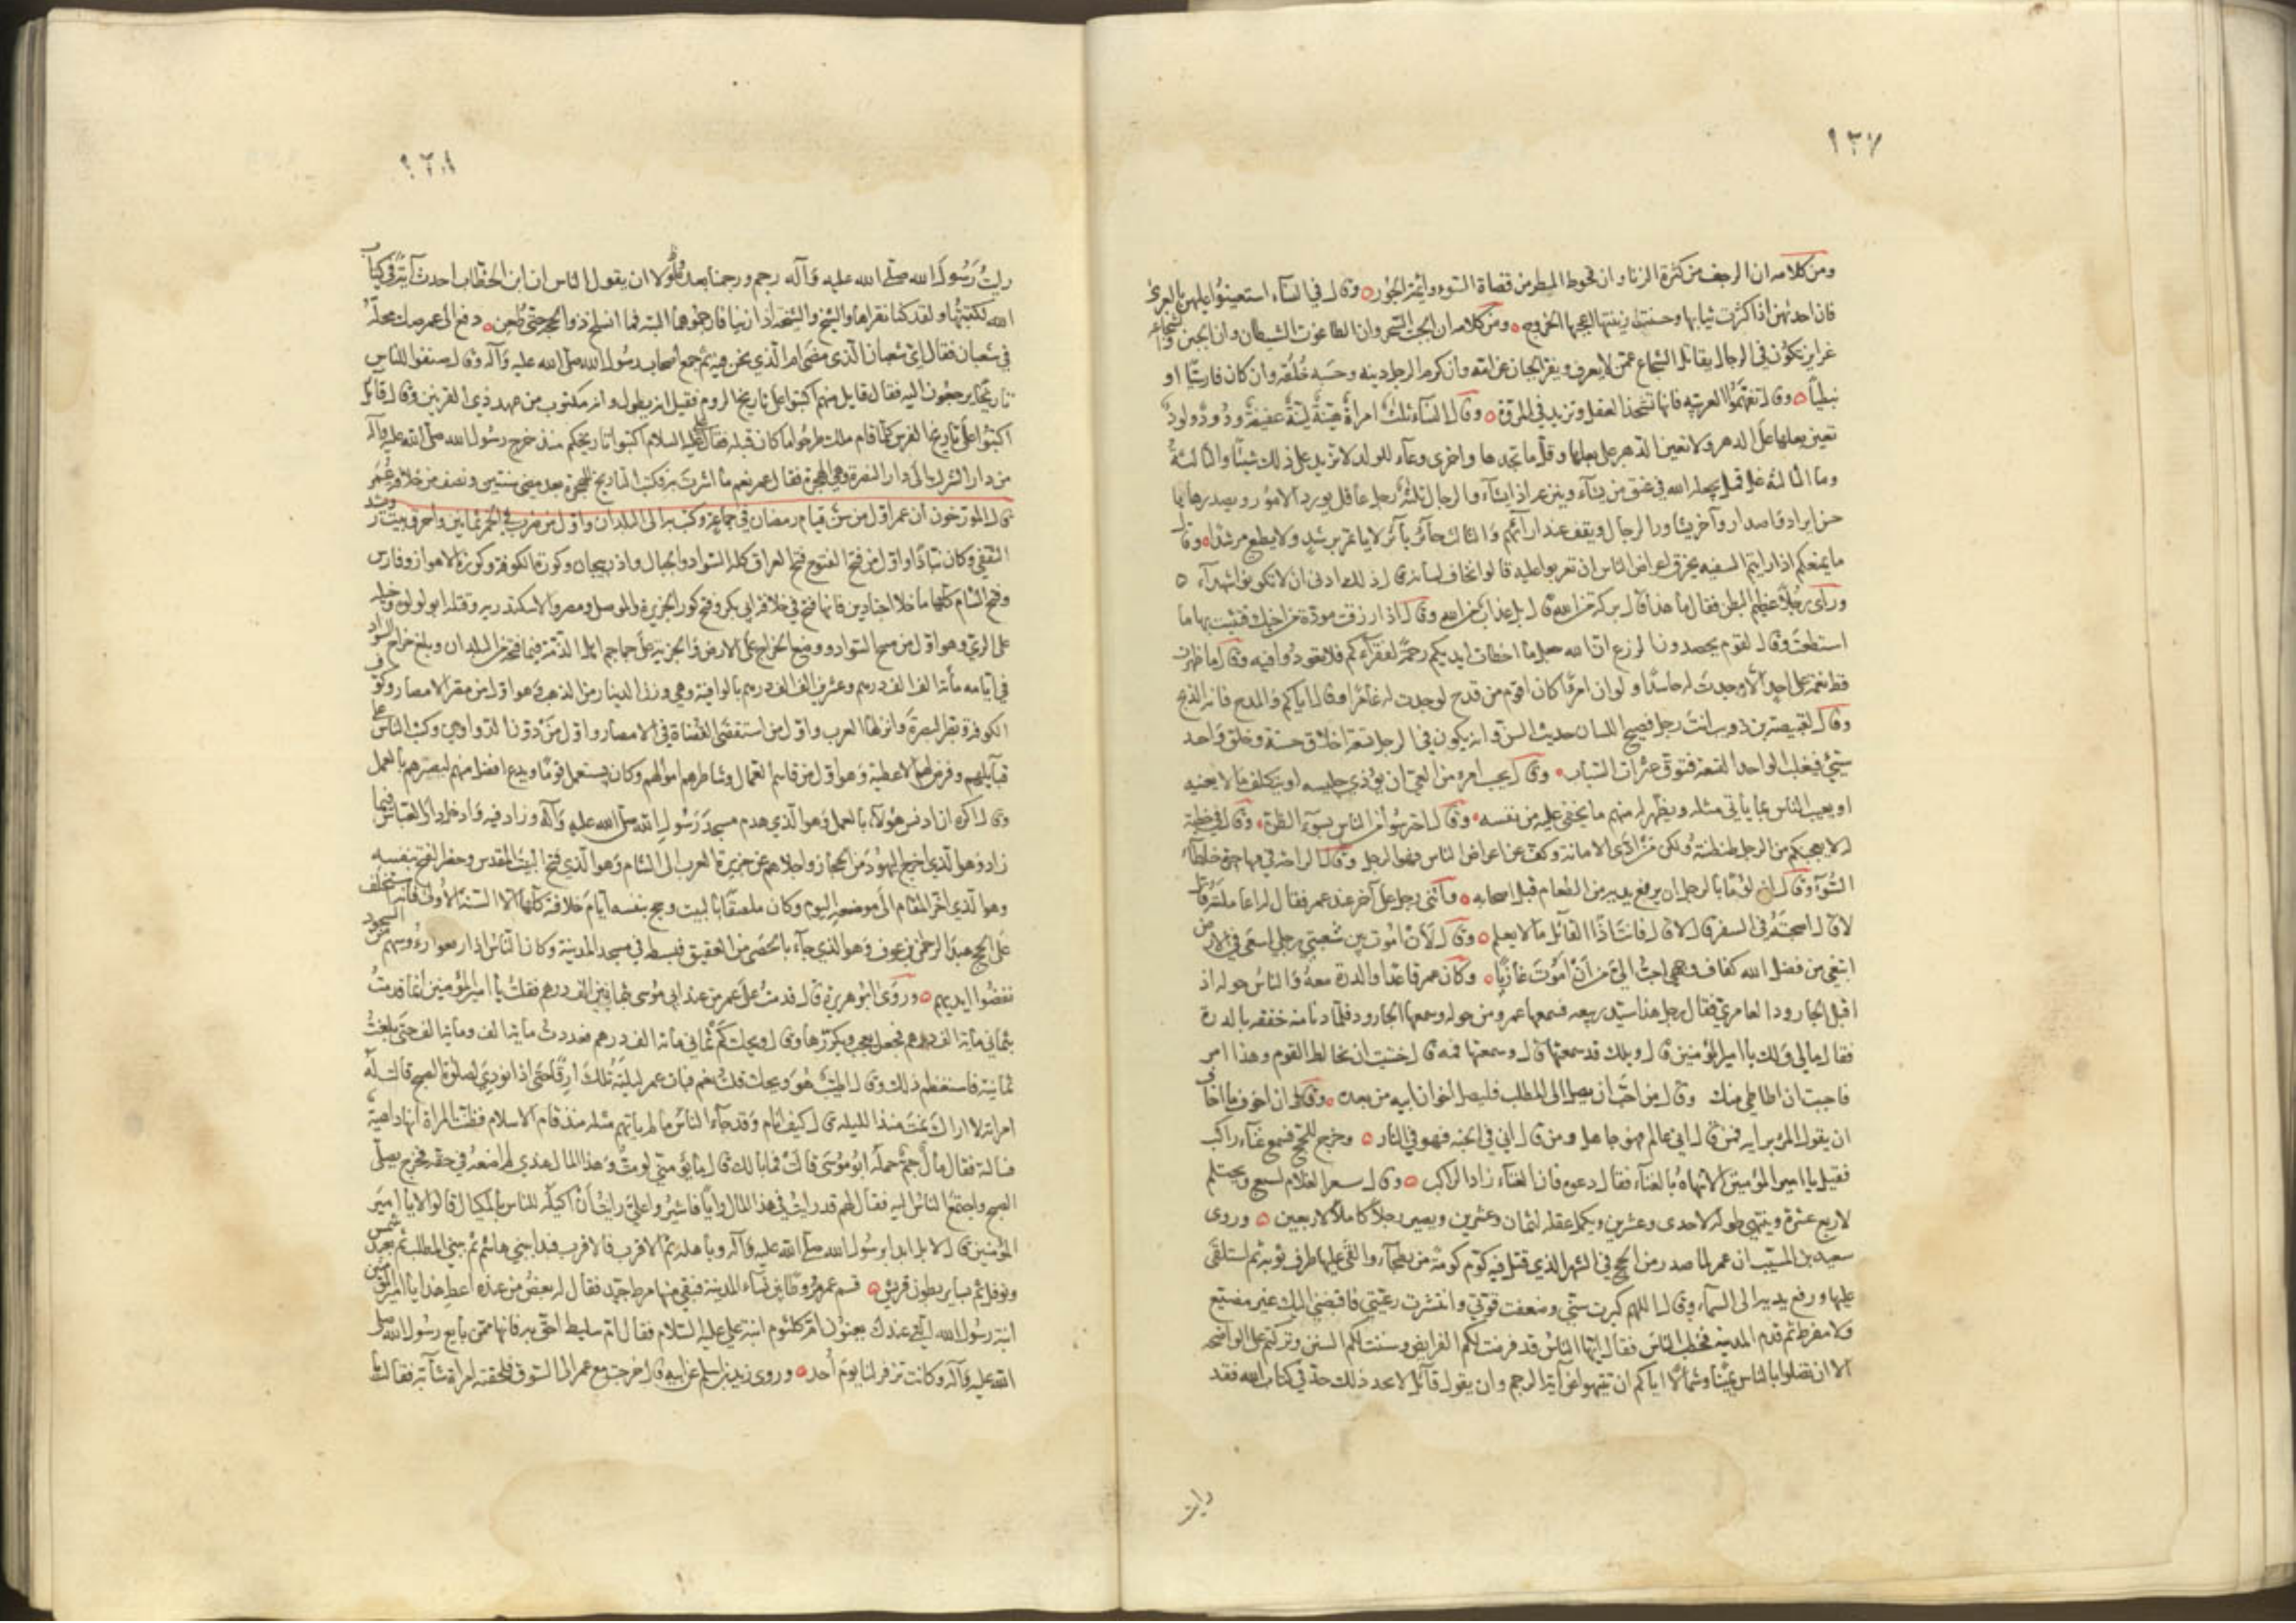 ٩٣٧
ومن كلامه ان الرجف من كثرة الزنا وان قحوط المطر من قضاة السوء وائمة الجور وقال في النساء استعينوا عليهن بالعرى
فان احدىهن اذا كثرت ثيابها وحسنت زينتها اعجبها الخروج ومن كلامه ان الجبت السحر وان الطاغوت الشيطان وان الجبن والشجاعة
غرايز تكون في الرجال يقاتل الشجاع عمن لا يعرف ويفر الجبان عن امه وان كرم الرجل دينه وحسبه خلقه وان كان فارسيا او
نبطيا وقال تفهموا العربيه فانها تشحذ العقل وتزيد في المروة وقال النساء ثلث امراة هينة لينة عفيفة ودود ولود
تعين بعلها على الدهر ولا تعين الدهر على بعلها وقل ما تجدها واخرى وعاء للولد لا تزيد على ذلك شيئا والثالثة
غل قمل يجعله الله في عنق من يشاء وينزعه اذا يشاء والرجال ثلثة رجل عاقل يورد الامور ويصدرها
حسن ايراد واصدار وآخر يشاور الرجال ويقف عند ارائهم والثالث حائر بائر لا ياتمر برشد ولا يطيع مرشدا وقال
ما يمنعكم اذا رايتم السفيه يخرق اعراض الناس ان تعربوا عليه قالوا نخاف لسانه قال ذلك ادنى ان لا تكونوا شهداء
وراى رجلا عظيم البطن فقال ما هذا قال بركة من الله قال بل عذاب من الله وقال اذا رزقت مودة من اخيك فتشبث بها ما
استطعت وقال لقوم يحصدون الزرع ان الله جعل ما اخطات ايديكم رحمة لفقرآئكم فلا تعودوا فيه وقال ما ظهرت
قط نعمة على احد الا وجدت له حاسدا ولو ان امرءا كان اقوم من قدح لوجدت له غامزا وقال اياكم والمدح فانه الذبح
وقال لقبيصة بن ذويب انت رجل فصيح اللسان حديث السن وانه يكون في الرجل تسعة اخلاق حسنة وخلق واحد
سيئ فيغلب الواحد التسعة فتوق عثرات الشباب وقال بحسب امرء من الغي ان يؤذي جليسه او يتكلف ما لا يعنيه
او يعيب الناس بما ياتي مثله ويظهر له منهم ما يخفى عليه من نفسه وقال احترسوا من الناس بسوء الظن وقال في خطبة
له لا يعجبكم من الرجل طنطنته ولكن من ادى الامانة وكف عن اعراض الناس فهو الرجل وقال الراحة في مهاجرة خلطاء
السوء وقال ان لؤما بالرجل ان يرفع يديه من الطعام قبل اصحابه واثنى رجل على آخر عند عمر فقال له اعاملته قال
لا قال اصحبته في السفر قال لا قال فانت اذا القائل ما لا يعلم وقال لأن اموت بين شعبتي رحلي اسعى في الارض
ابتغي من فضل الله كفاف وجهي احب الي من ان اموت غازيا وكان عمر قاعدا والدرة معه والناس حوله اذ
اقبل الجارود العامري فقال رجل هذا سيد ربيعه فسمعها عمر ومن حوله وسمعها الجارود فلما دنا منه خفقه بالدرة
فقال مالي ولك يا امير المؤمنين قال ويلك قد سمعتها قال وسمعتها فمه قال خشيت ان تخالط القوم وهذا امر
فاحببت ان اطاطئ منك وقال من احب ان يصل فليصل اخوان ابيه من بعده وقال ان اخوف ما اخاف
ان يقول المؤمن برايه فمن قال اني عالم فهو جاهل ومن قال اني في الجنه فهو في النار وخرج للحج فسمع غناء راكب
فقيل يا امير المؤمنين الا تنهاه بالغناء فقال دعوه فان الغناء زاد الراكب وقال الغلام لسبع ويحتلم
لاربع عشرة وينتهي طوله لاحدى وعشرين ويكمل عقله لثمان وعشرين ويصير رجلا كاملا لاربعين وروى
سعيد بن المسيب ان عمر لما صدر من الحج في الشهر الذي قتل فيه كوم كومة من بطحاء والقى عليها طرف ثوبه ثم استلقى
عليها ورفع يديه الى السماء وقال اللهم كبرت سني وضعفت قوتي وانتشرت رعيتي فاقبضني اليك غير مضيع
ولا مفرط ثم قدم المدينه فخطب الناس فقال ايها الناس قد فرضت لكم الفرايض وسننت لكم السنن وتركتم على الواضحه
الا ان تضلوا بالناس يمينا وشمالا اياكم ان تنتهوا عن آية الرجم وان يقول قائل لا نجد ذلك حدا في كتاب الله فقد
رايت
٩٣٨
رايت رسول الله صلى الله عليه وآله رجم ورجمنا بعده ولولا ان يقول الناس ان ابن الخطاب احدث آية في كتاب
الله لكتبتها ولقد كنا نقراها والشيخ والشيخة اذا زنيا فارجموهما البته فما انسلخ ذو الحجه حتى طعن دفع الى عمر صك محله
في شعبان فقال اي شعبان الذي مضى ام الذي نحن فيه ثم جمع اصحاب رسول الله صلى الله عليه وآله وقال ضعوا للناس
تاريخا يرجعون اليه فقال قايل منهم اكتبوا على تاريخ الروم فقيل انه يطول وانه مكتوب من عهد ذي القرنين وقال قائل
اكتبوا على تاريخ الفرس كلما قام ملك طرحوا ما كان قبله فقال علي عليه السلام اكتبوا تاريخكم منذ خرج رسول الله صلى الله عليه وآله
من دار الشرك الى دار النصرة وهي الهجرة فقال عمر نعم ما اشرت به فكتب التاريخ للهجرة بعد مضي سنتين ونصف من خلافة عمر
قال المورخون ان عمر اول من سن قيام رمضان في جماعة وكتب به الى البلدان واول من ضرب في الخمر ثمانين واحرق بيت رويشد
الثقفي وكان نباذا واول من فتح الفتوح فتح العراق كله السواد والجبال واذربيجان وكورة الكوفة وكورة الاهواز وفارس
وفتح الشام كلها ما خلا اجنادين فانها فتح في خلافة ابي بكر وفتح كور الجزيرة والموصل ومصر والاسكندريه وقتله ابو لولوة وخيله
على الري وهو اول من مسح السواد ووضع الخراج على الارض والجزية على جماجم اهل الذمة فيما فتحه من البلدان وبلغ خراج السواد
في ايامه مأئة الف الف درهم وعشرين الف الف درهم بالوافية وهي وزن الدينار من الذهب وهو اول من مصر الامصار وكوف
الكوفة وبصر البصرة وانزلها العرب واول من استقضى القضاة في الامصار واول من دون الدواوين وكتب الناس على
قبايلهم وفرض لهم الاعطية وهو اول من قاسم العمال وشاطرهم اموالهم وكان يستعمل قوما ويدع افضل منهم لبصرهم بالعمل
وقال اكره ان ادنس هؤلاء بالعمل وهو الذي هدم مسجد رسول الله صلى الله عليه وآله وزاد فيه وادخل دار العباس فيما
زاد وهو الذي اخرج اليهود من الحجاز واجلاهم عن جزيرة العرب الى الشام وهو الذي فتح البيت المقدس وحضر الفتح بنفسه
وهو الذي اخر المقام الى موضعه اليوم وكان ملصقا بالبيت وحج بنفسه ايام خلافته كلها الا السنة الاولى فانه استخلف
على الحج عبد الرحمن بن عوف وهو الذي جاء بالحصى من العقيق فبسطه في مسجد المدينة وكان الناس اذا رفعوا رءوسهم من السجود
نفضوا ايديهم وروى ابو هريرة قال قدمت على عمر من عند ابي موسى بثمانمائة الف درهم فقلت يا امير المؤمنين انما قدمت
بثماني مأية الف درهم فجعل يعجب ويكررها وقال ويحك كم ثماني مأئة الف درهم فعددت مأية الف ومأية الف حتى بلغت
ثمانية فاستعظم ذلك وقال اطيب هو ويحك قلت نعم فبات عمر ليلته تلك ارقا حتى اذا نودي لصلوة الصبح قالت له
امراته لا اراك نمت منذ الليله قال كيف انام وقد جاء الناس ما لم ياتهم مثله منذ قام الاسلام فظنت المراة انها داهية
فسالته فقال مال جم حمله ابو موسى قالت فما بالك قال ما يؤمنني لو مت وهذا المال عندي لم اضعه في حقه فخرج يصلي
الصبح واجتمع الناس اليه فقال لهم قد رايت في هذا المال رايا فاشيروا علي رايت أن اكيله للناس بالمكيال قالوا لا يا امير
المؤمنين قال لا بل ابدا برسول الله صلى الله عليه وآله وباهله ثم الاقرب فالاقرب فبدا ببني هاشم ثم ببني المطلب ثم بعبد شمس
ونوفل ثم بساير بطون قريش قسم عمر مروطا بين نساء المدينة فبقي منها مرط جيد فقال له بعض من عنده اعط هذا يا امير المؤمنين
ابنة رسول الله التي عندك يعنون ام كلثوم ابنة علي عليه السلام فقال ام سليط احق به فانها ممن بايع رسول الله صلى
الله عليه وآله وكانت تزفر لنا يوم أحد وروى زيد بن اسلم عن ابيه قال خرجت مع عمر الى السوق فلحقته امراة شابة فقالت